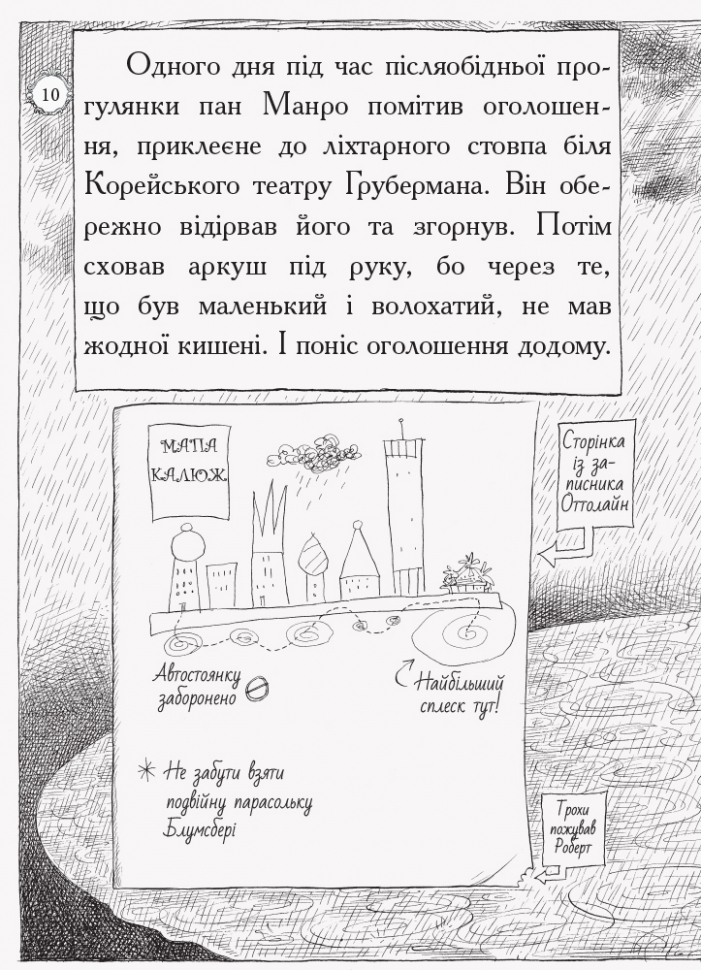 10
Одного дня під час післяобідньої про-
гулянки пан Манро помітив оголошен-
ня, приклеєне до ліхтарного стовпа біля
Корейського театру Грубермана. Він обе-
режно відірвав його та згорнув. Потім
сховав аркуш під руку, бо через те,
що був маленький і волохатий, не мав
жодної кишені. І поніс оголошення додому.
МАПА
КАЛЮЖ
Сторінка
із за-
писника
Оттолайн
Автостоянку
заборонено
Найбільший
сплеск тут!
* Не забути взяти
подвійну парасольку
Блумсбері
Трохи
пожував
Роберт